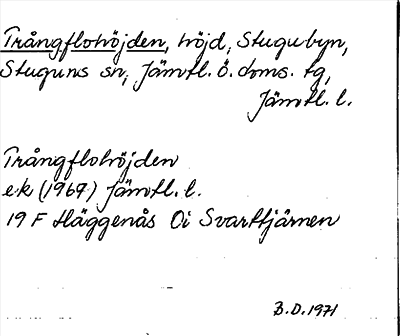 Trångflohöjden, höjd, Stugubyn,
Stuguns sn, Jämtl. ö. doms. tg,
Jämtl. l.
Trångflohöjden
ek (1969) Jämtl. l.
19 F Häggenås Oi Svarttjärnen
B.D. 1971